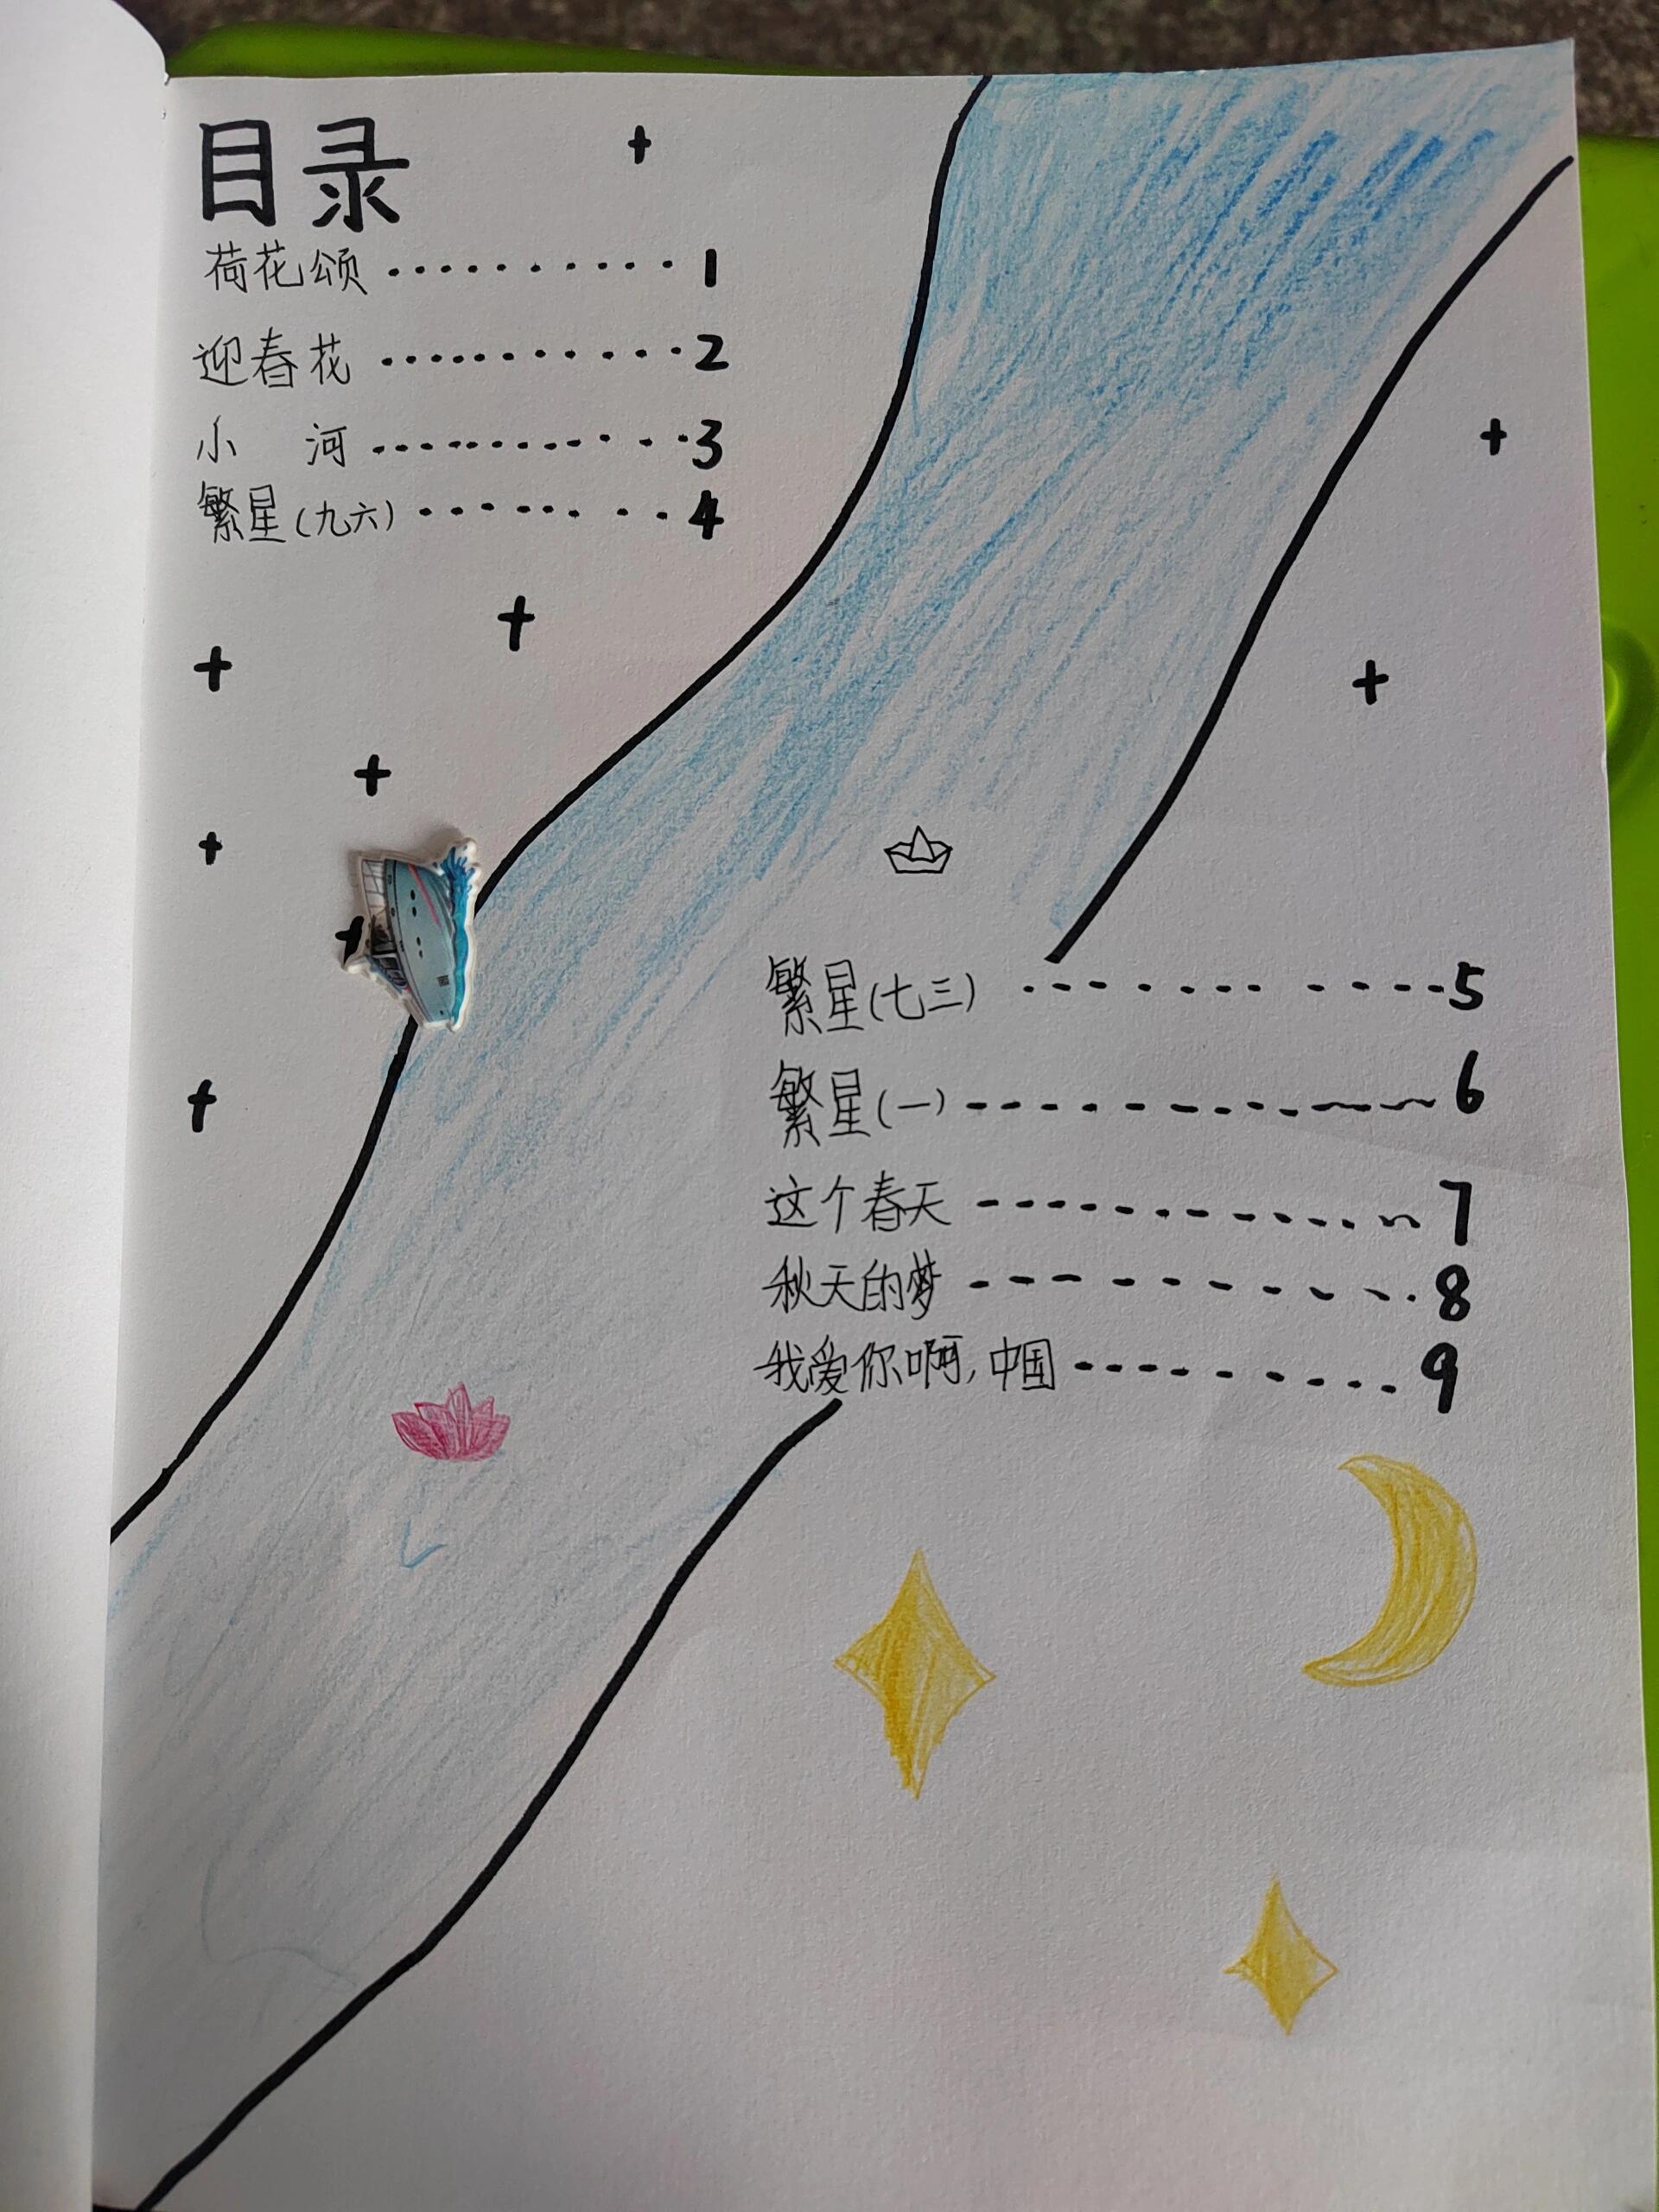 目录
荷花颂··········1
迎春花··········2
小 河··········3
繁星(九六)··········4
繁星(七三)----------5
繁星(一)----------6
这个春天----------7
秋天的梦----------8
我爱你啊,中国----------9